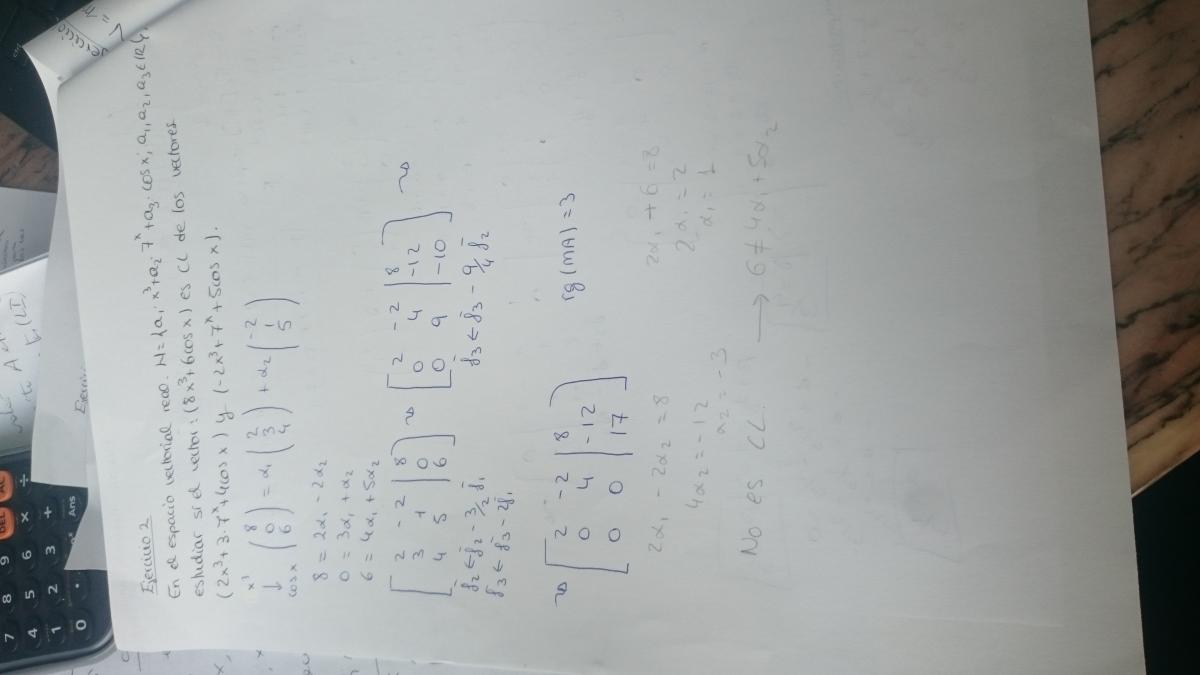 Ejercicio 2
En el espacio vectorial real. N={a₁·x³+a₂·7ˣ+a₃·cosx; a₁,a₂,a₃∈ℝ},
estudiar si el vector: (8x³+6cosx) es CL de los vectores
(2x³+3·7ˣ+4cosx) y (-2x³+7ˣ+5cosx).
x³
↓
cosx
(8 0 6) = α₁ (2 3 4) + α₂ (-2 1 5)
8 = 2α₁ - 2α₂
0 = 3α₁ + α₂
6 = 4α₁ + 5α₂
[2 -2 | 8
3 1 | 0
4 5 | 6]
f₂ ← f₂ - 3/2 f₁
f₃ ← f₃ - 2f₁
[2 -2 | 8
0 4 | -12
0 9 | -10]
f₃ ← f₃ - 9/4 f₂
[2 -2 | 8
0 4 | -12
0 0 | 17]
rg(MA) = 3
2α₁ - 2α₂ = 8
4α₂ = -12
α₂ = -3
2α₁ + 6 = 8
2α₁ = 2
α₁ = 1
No es CL. → 6 ≠ 4α₁ + 5α₂
DEL
AC
7 8 9
4 5 6 × ÷
1 2 3 + -
0 . Ans